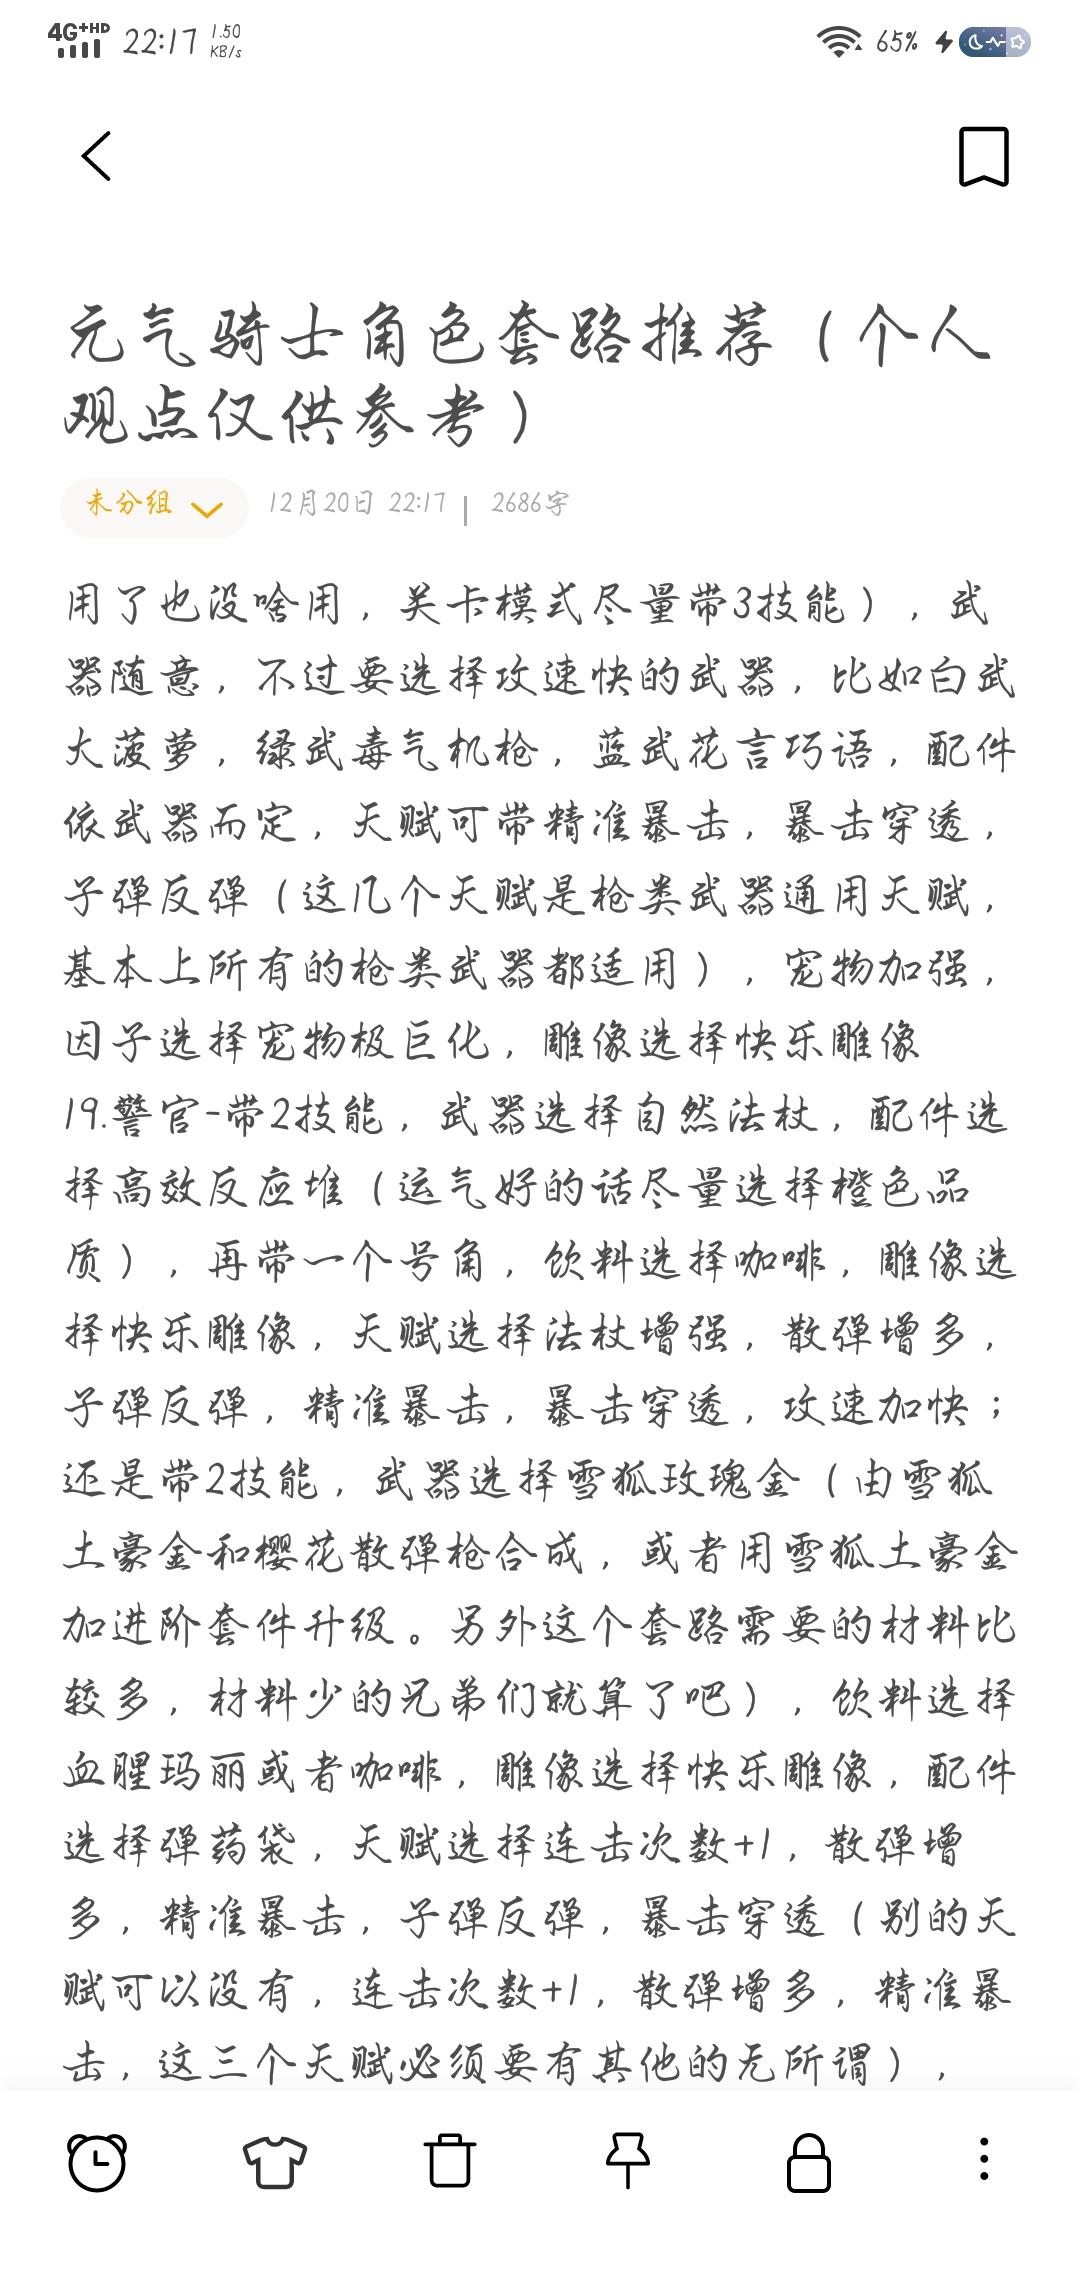 4G+HD 22:17 1.50 KB/s 65%
元气骑士角色套路推荐（个人
观点仅供参考）
未分组 12月20日 22:17 | 2686字
用了也没啥用，关卡模式尽量带3技能），武
器随意，不过要选择攻速快的武器，比如白武
大菠萝，绿武毒气机枪，蓝武花言巧语，配件
依武器而定，天赋可带精准暴击，暴击穿透，
子弹反弹（这几个天赋是枪类武器通用天赋，
基本上所有的枪类武器都适用），宠物加强，
因子选择宠物极巨化，雕像选择快乐雕像
19.警官-带2技能，武器选择自然法杖，配件选
择高效反应堆（运气好的话尽量选择橙色品
质），再带一个号角，饮料选择咖啡，雕像选
择快乐雕像，天赋选择法杖增强，散弹增多，
子弹反弹，精准暴击，暴击穿透，攻速加快；
还是带2技能，武器选择雪狐玫瑰金（由雪狐
土豪金和樱花散弹枪合成，或者用雪狐土豪金
加进阶套件升级。另外这个套路需要的材料比
较多，材料少的兄弟们就算了吧），饮料选择
血腥玛丽或者咖啡，雕像选择快乐雕像，配件
选择弹药袋，天赋选择连击次数+1，散弹增
多，精准暴击，子弹反弹，暴击穿透（别的天
赋可以没有，连击次数+1，散弹增多，精准暴
击，这三个天赋必须要有其他的无所谓），